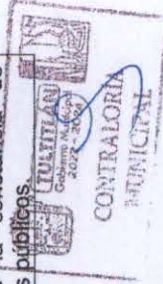 públicos.
TULTITLÁN
Gobierno Municipal
2022 - 2024
CONTRALORÍA
MUNICIPAL